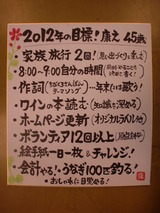 2012年の目標!康え 45歳
・家族旅行2回!
・8:00~9:00自分の時間
・作詞 …年末には歌う!
・ワインの本読む
・ホームページ更新
・ボランティア12回以上
・絵手紙一日一枚&チャレンジ!
・会計やる!うなぎ100匹釣る!
おしゃれに目覚める!